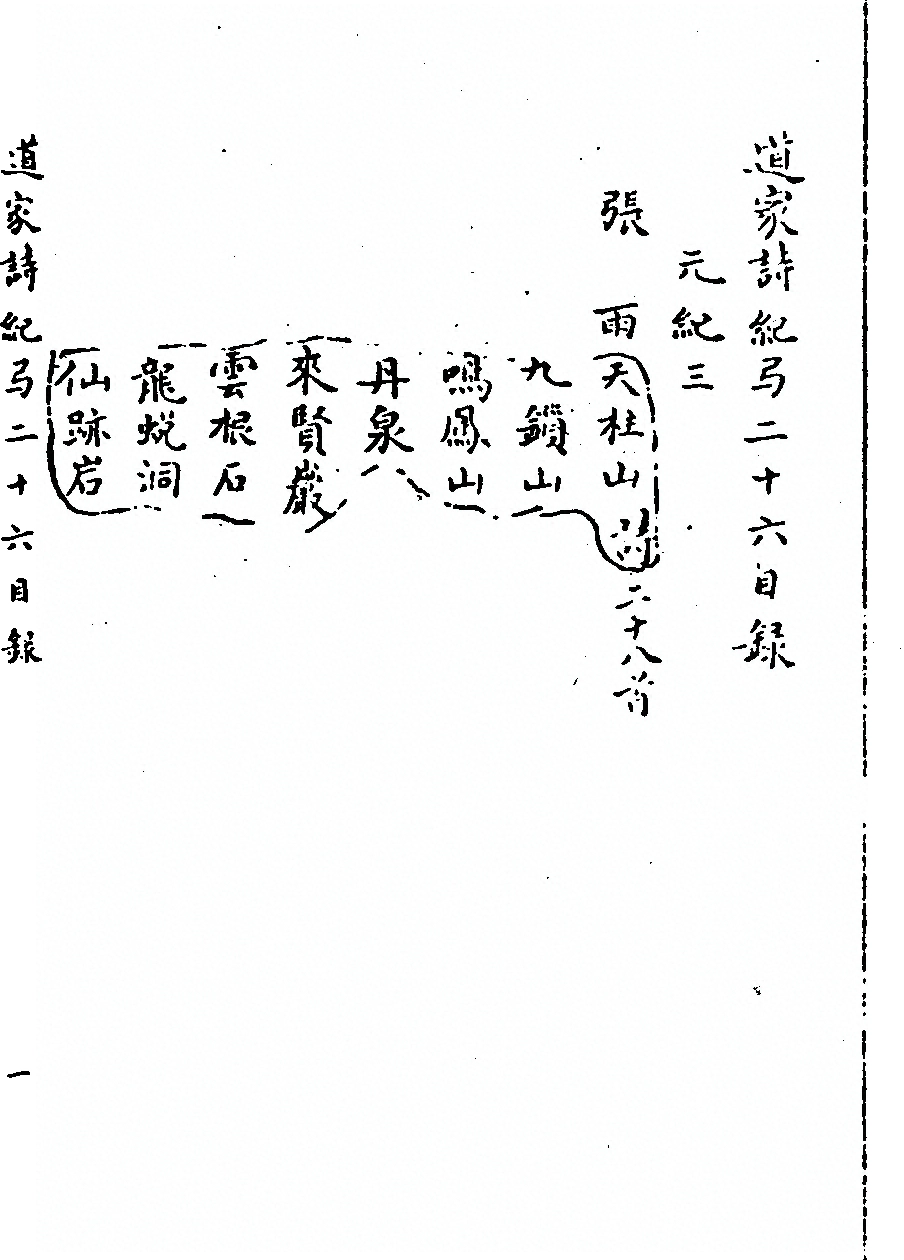 道家詩紀弓二十六目録
元紀三
張　雨 天柱山 詩二十八首
九鎖山
鳴鳳山
丹泉
來賢巖
雲根石
龍蛻洞
仙跡岩
道家詩紀弓二十六目録
一